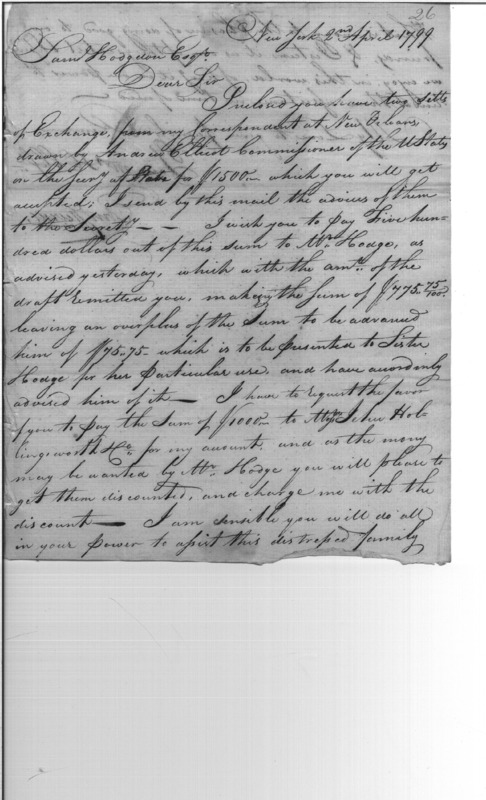 26
New York 2nd April 1799
Saml Hodgdon Esqr.
Dear Sir
Inclosed you have two setts
of Exchange, from my Correspondent at New Orleans
drawn by Andrew Ellicot Commissioner of the U States
on the Secy of State for $1500— which you will get
accepted; I send by this mail the advices of them
to the Secrety — — I wish you to pay Five hun-
dred dollars out of this sum to Mr. Hodge, as
advised yesterday, which with the amt. of the
draft remitted you, making the sum of $775.75/100.
leaving an overplus of the sum to be advanced
him of $75.75 which is to be presented to Sister
Hodge for her particular use, and have accordinly
advised him of it — I have to request the favor
of you to pay the sum of $1000— to Messrs Jehu Hol-
lingsworth & Co. for my account, and as the mony
may be wanted by Mr. Hodge you will please to
get them discounted, and charge me with the
discount — I am sensible you will do all
in your power to assist this distressed family